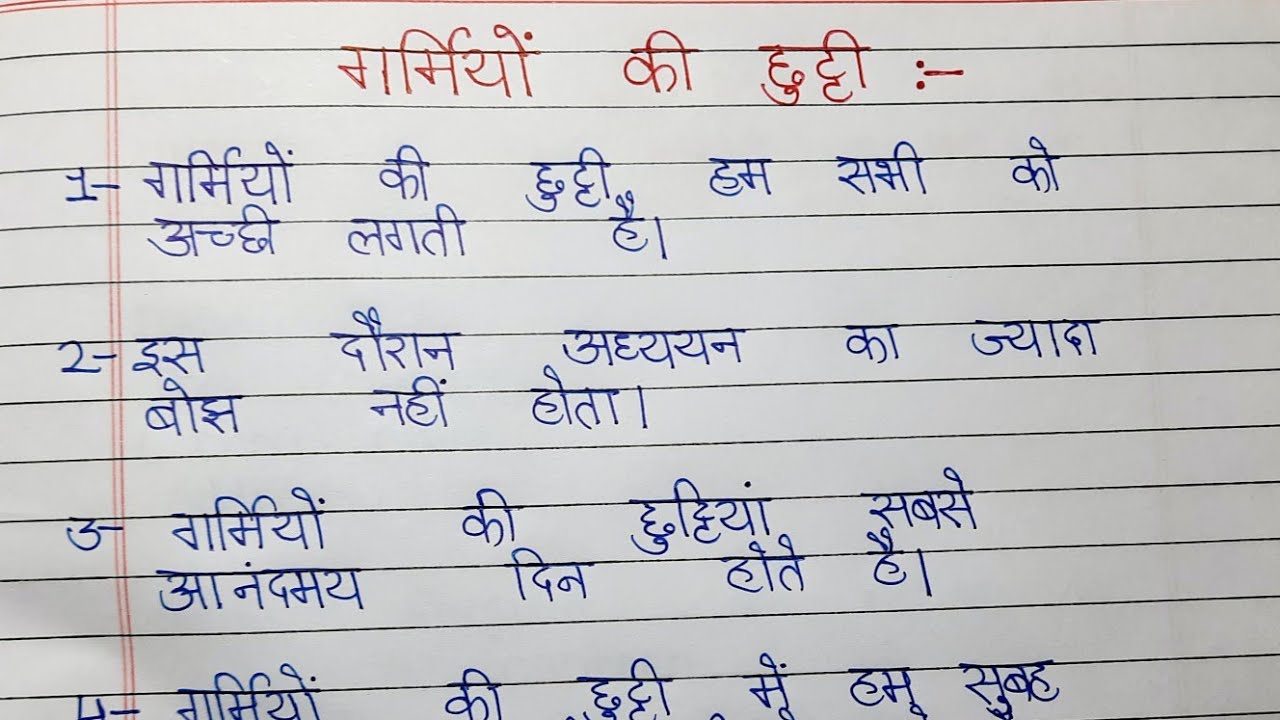 गर्मियों की छुट्टी :-
1- गर्मियों की छुट्टी हम सभी को
अच्छी लगती है।
2- इस दौरान अध्ययन का ज्यादा
बोझ नहीं होता।
3- गर्मियों की छुट्टियां सबसे
आनंदमय दिन होते है।
4- गर्मियों की छुट्टी में हम सुबह